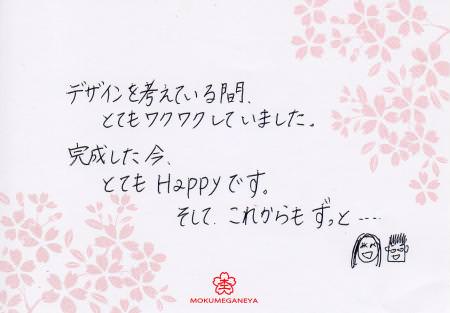 デザインを考えている間、
とてもワクワクしていました。
完成した今、
とても Happy です。
そして、これからも ずっと----
杢
MOKUMEGANEYA